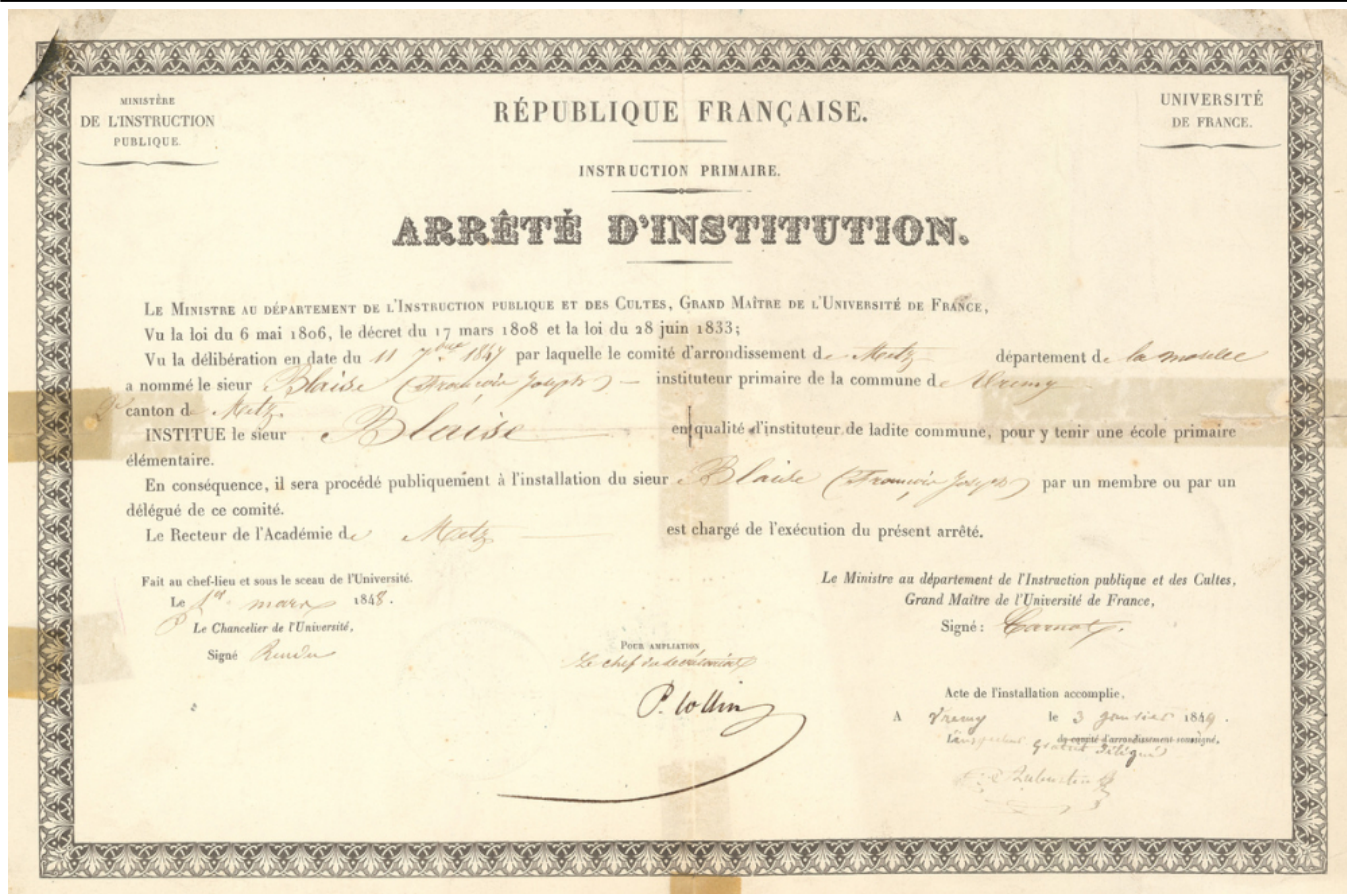 MINISTÈRE
DE L'INSTRUCTION
PUBLIQUE.
RÉPUBLIQUE FRANÇAISE.
UNIVERSITÉ
DE FRANCE.
INSTRUCTION PRIMAIRE.
ARRÊTÉ D'INSTITUTION.
LE MINISTRE AU DÉPARTEMENT DE L'INSTRUCTION PUBLIQUE ET DES CULTES, GRAND MAÎTRE DE L'UNIVERSITÉ DE FRANCE,
Vu la loi du 6 mai 1806, le décret du 17 mars 1808 et la loi du 28 juin 1833;
Vu la délibération en date du 11 7bre 1847 par laquelle le comité d'arrondissement de Metz département de la moselle
a nommé le sieur Blaise (François Joseph) instituteur primaire de la commune de Vremy
canton de Metz.
INSTITUE le sieur Blaise en qualité d'instituteur de ladite commune, pour y tenir une école primaire
élémentaire.
En conséquence, il sera procédé publiquement à l'installation du sieur Blaise (François Joseph) par un membre ou par un
délégué de ce comité.
Le Recteur de l'Académie de Metz est chargé de l'exécution du présent arrêté.
Fait au chef-lieu et sous le sceau de l'Université.
Le 1er mars 1848.
P Le Chancelier de l'Université,
Signé Rendu
POUR AMPLIATION
Le chef du secrétariat
P. Collin
Le Ministre au département de l'Instruction publique et des Cultes,
Grand Maître de l'Université de France,
Signé : Carnot.
Acte de l'installation accomplie,
A Vremy le 3 janvier 1849.
L'inspecteur gratuit délégué du comité d'arrondissement soussigné,